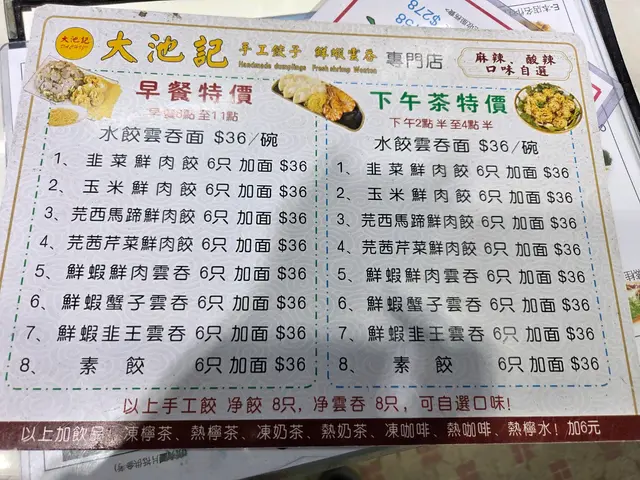 大池記
大池記 手工餃子 鮮蝦雲吞 專門店
Handmade dumplings Fresh shrimp Wonton
麻辣、酸辣
口味自選
早餐特價
早餐6點至11點
水餃雲吞面 $36/碗
1、 韭菜鮮肉餃 6只 加面 $36
2、 玉米鮮肉餃 6只 加面 $36
3、芫西馬蹄鮮肉餃 6只 加面 $36
4、芫茜芹菜鮮肉餃 6只 加面 $36
5、 鮮蝦鮮肉雲吞 6只 加面 $36
6、 鮮蝦蟹子雲吞 6只 加面 $36
7、 鮮蝦韭王雲吞 6只 加面 $36
8、 素餃 6只 加面 $36
下午茶特價
下午2點半至4點半
水餃雲吞面 $36/碗
1、 韭菜鮮肉餃 6只 加面 $36
2、 玉米鮮肉餃 6只 加面 $36
3、芫西馬蹄鮮肉餃 6只 加面 $36
4、芫茜芹菜鮮肉餃 6只 加面 $36
5、 鮮蝦鮮肉雲吞 6只 加面 $36
6、 鮮蝦蟹子雲吞 6只 加面 $36
7、 鮮蝦韭王雲吞 6只 加面 $36
8、 素餃 6只 加面 $36
以上手工餃 净餃 8只，净雲吞 8只，可自選口味!
以上加飲品 凍檸茶、熱檸茶、凍奶茶、熱奶茶、凍咖啡、熱咖啡、熱檸水! 加6元
$278